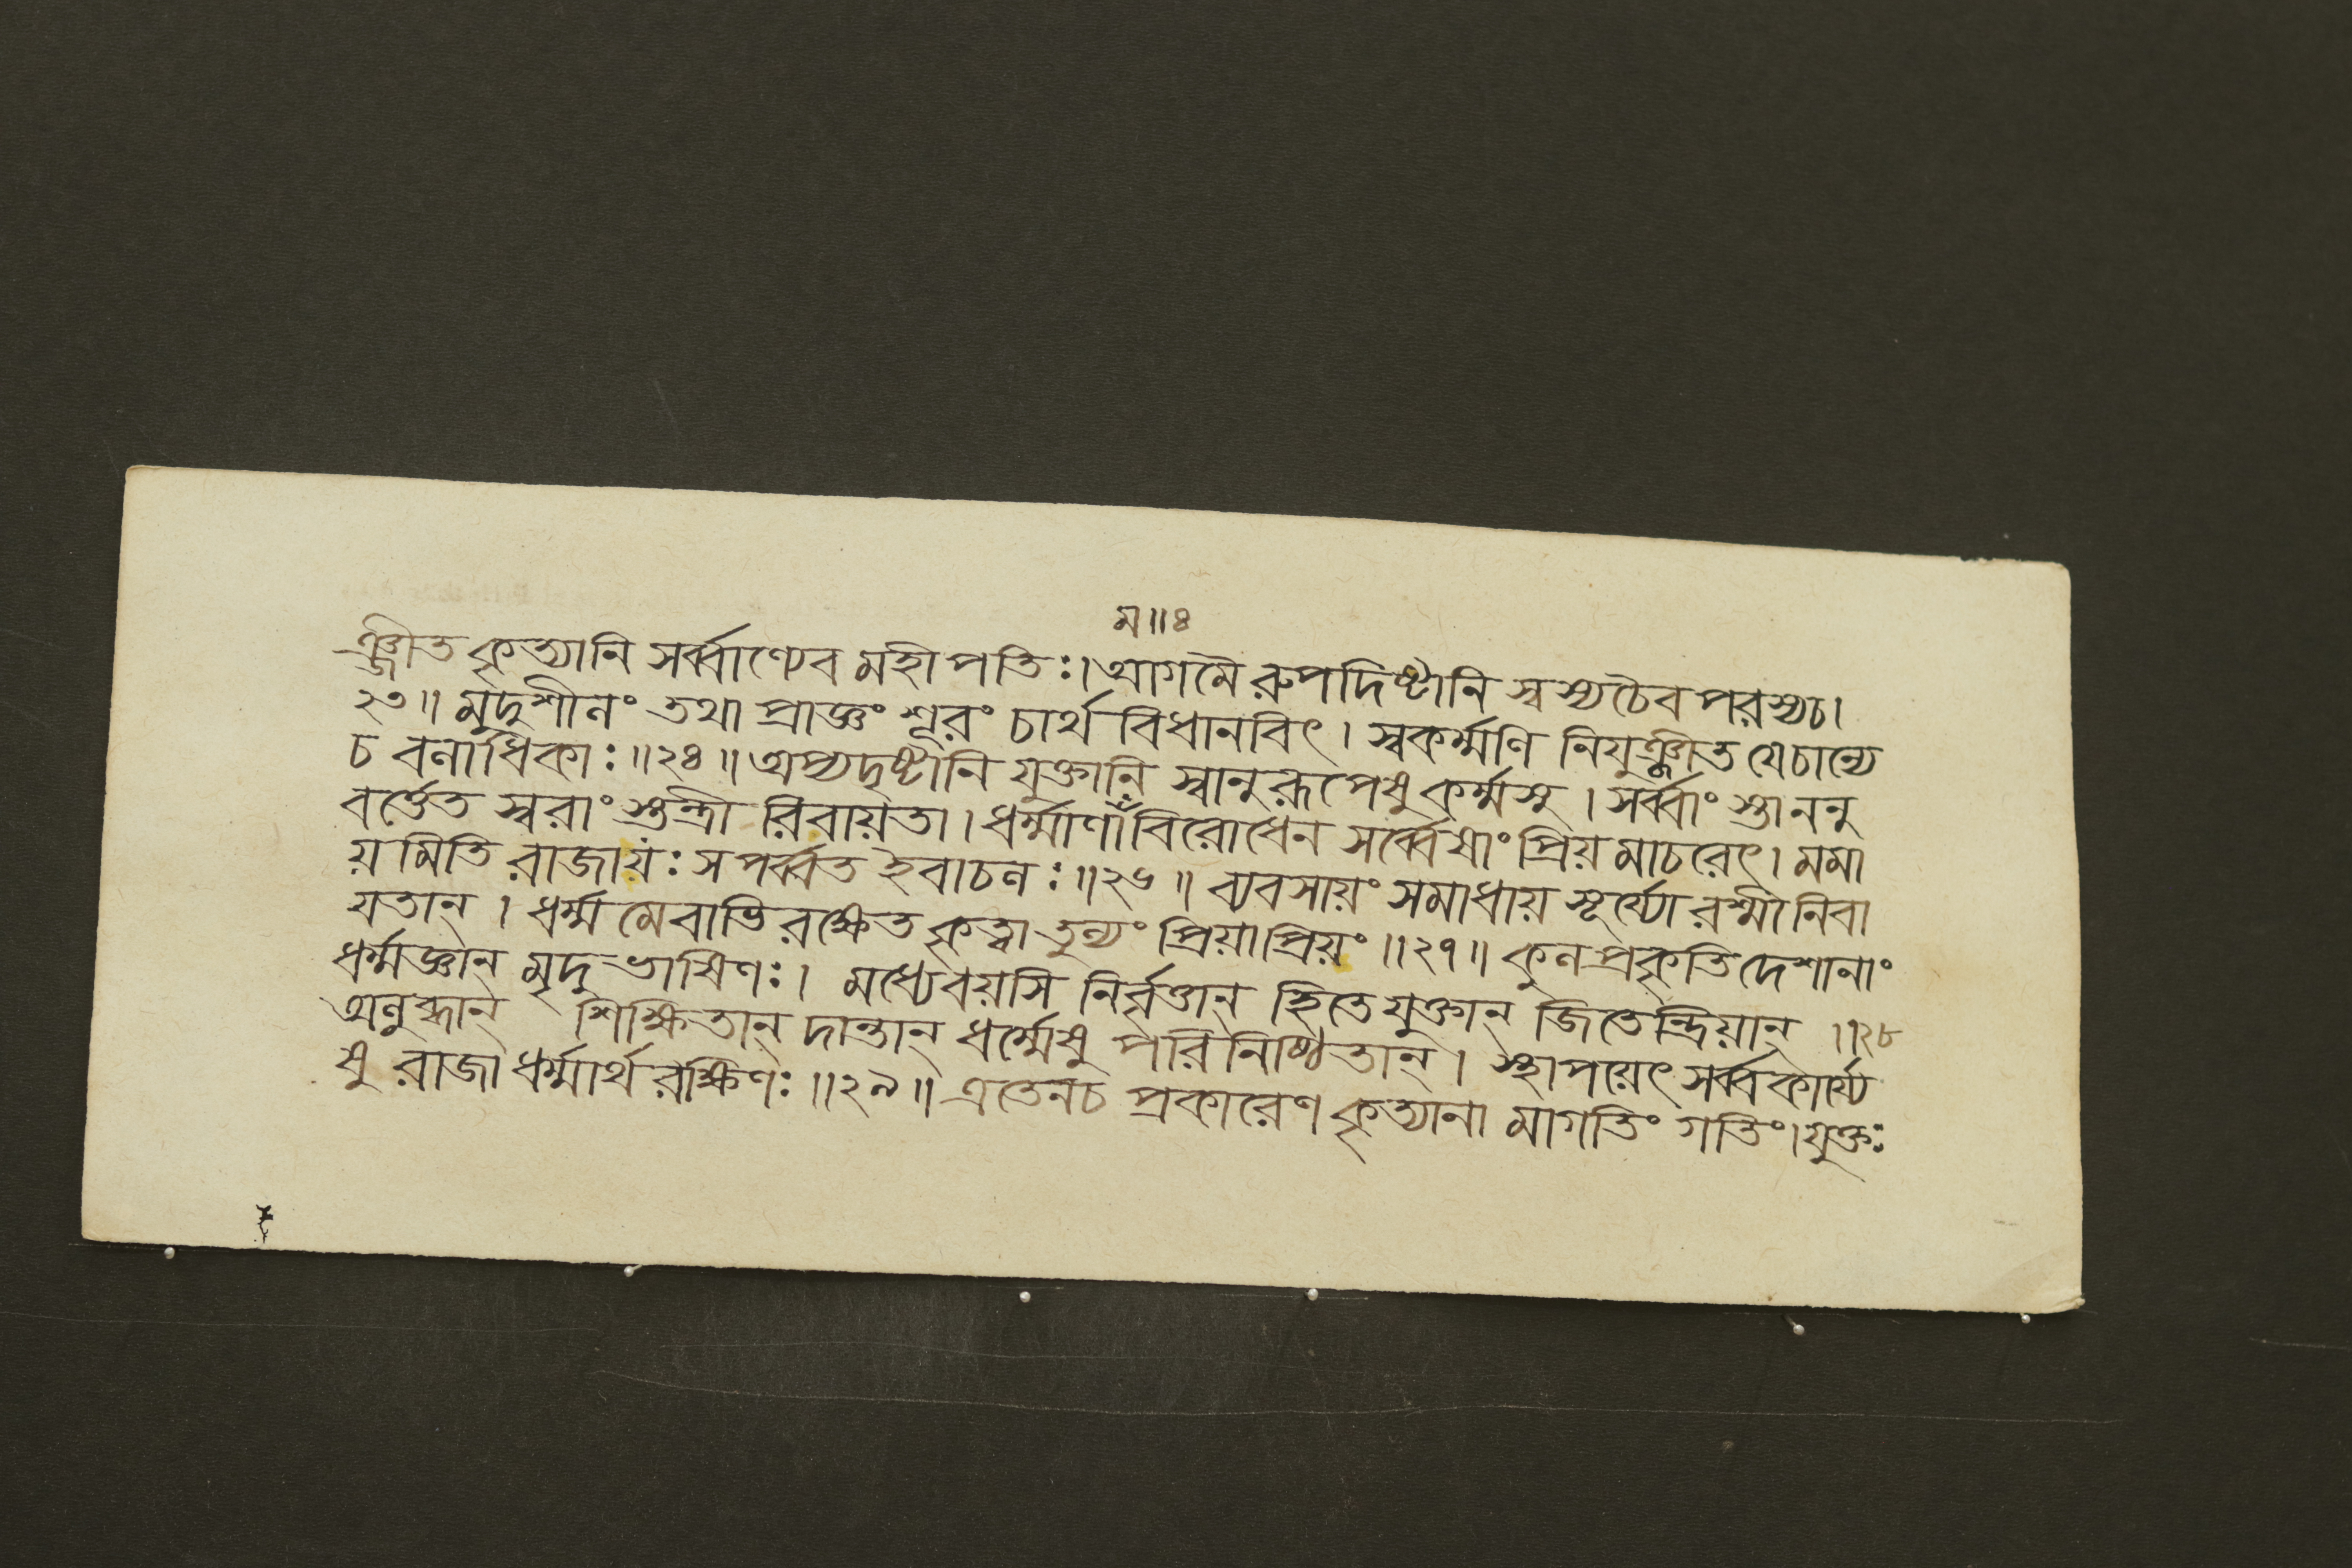 ম॥৪
ঞ্জীত কৃত্যানি সর্ব্বাণ্যেব মহীপতিঃ। আগমৈ রুপদিষ্টানি স্বস্যচৈব পরস্যচ।
২৩॥ মৃদুশীলং তথা প্রাজ্ঞং শূরং চার্থ বিধানবিৎ। স্বকর্ম্মণি নিযুঞ্জীত যেচান্যে
চ বলাধিকাঃ॥২৪॥ অপ্যদৃষ্টানি যুক্তানি স্বানুরূপেষু কর্ম্মসু। সর্ব্বাং স্তাননু
বর্ত্তেত স্বরাং স্তন্ত্রী রিবায়তা। ধর্ম্মাণাঁ বিরোধেন সর্ব্বেষাং প্রিয় মাচরেৎ। মমা
য় মিতি রাজায়ঃ স পর্ব্বত ইবাচলঃ॥২৬॥ ব্যবসায়ং সমাধায় সূর্য্যো রশ্মী নিবা
যতান্। ধর্ম্ম মেবাভি রক্ষেত কৃত্বা তুল্যং প্রিয়াপ্রিয়ং॥২৭॥ কুল প্রকৃতি দেশানাং
ধর্ম্মজ্ঞান্ মৃদুভাষিণঃ। মধ্যেবয়সি নির্বৃত্তান্ হিতে যুক্তান্ জিতেন্দ্রিয়ান্॥২৮
অলুব্ধান্ শিক্ষিতান্ দান্তান্ ধর্ম্মেষু পরিনিষ্ঠিতান্। স্থাপয়েৎ সর্ব্বকার্য্যে
ষু রাজা ধর্ম্মার্থ রক্ষিণঃ॥২৯॥ এতেনচ প্রকারেণ কৃত্যানা মাগতিং গতিং। যুক্তঃ